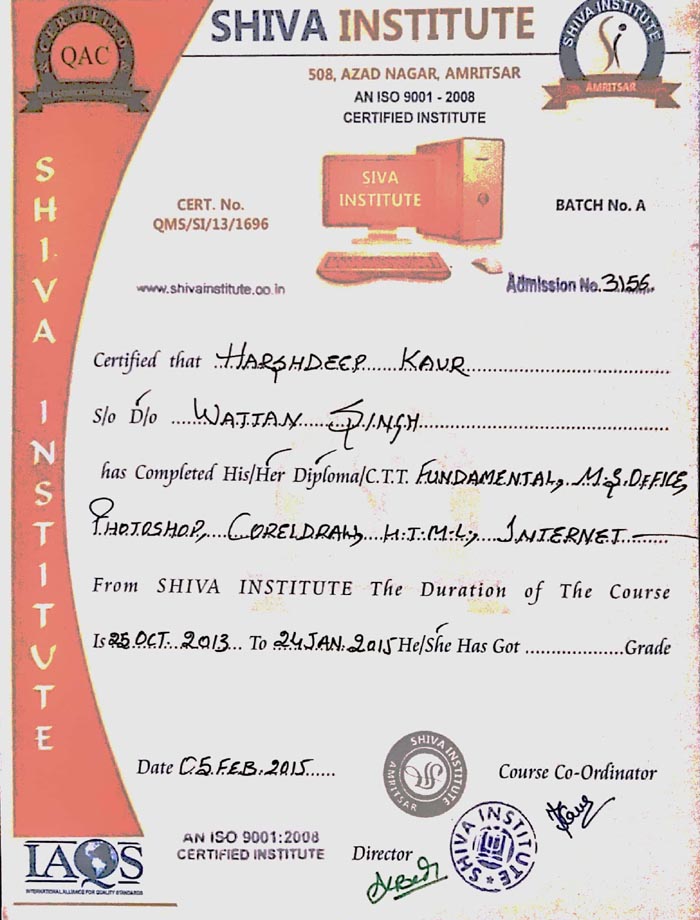 CERTIFIED
QAC
SHIVA INSTITUTE
508, AZAD NAGAR, AMRITSAR
AN ISO 9001 - 2008
CERTIFIED INSTITUTE
SHIVA INSTITUTE
Si
AMRITSAR
SHIVA INSTITUTE
CERT. No.
QMS/SI/13/1696
SIVA
INSTITUTE
BATCH No. A
www.shivainstitute.co.in
Admission No. 3156.
Certified that HARSHDEEP KAUR
S/o D/o WATTAN SINGH
has Completed His/Her Diploma/C.T.T. FUNDAMENTAL, M.S.OFFICE,
PHOTOSHOP, CORELDRAW, H.T.M.L., INTERNET
From SHIVA INSTITUTE The Duration of The Course
Is 25 OCT. 2013... To 24 JAN. 2015 He/She Has Got ..................Grade
Date 05.FEB.2015......
SHIVA INSTITUTE
AMRITSAR
Course Co-Ordinator
AN ISO 9001:2008
CERTIFIED INSTITUTE
Director
SHIVA INSTITUTE
IAQS
INTERNATIONAL ALLIANCE FOR QUALITY STANDARDS